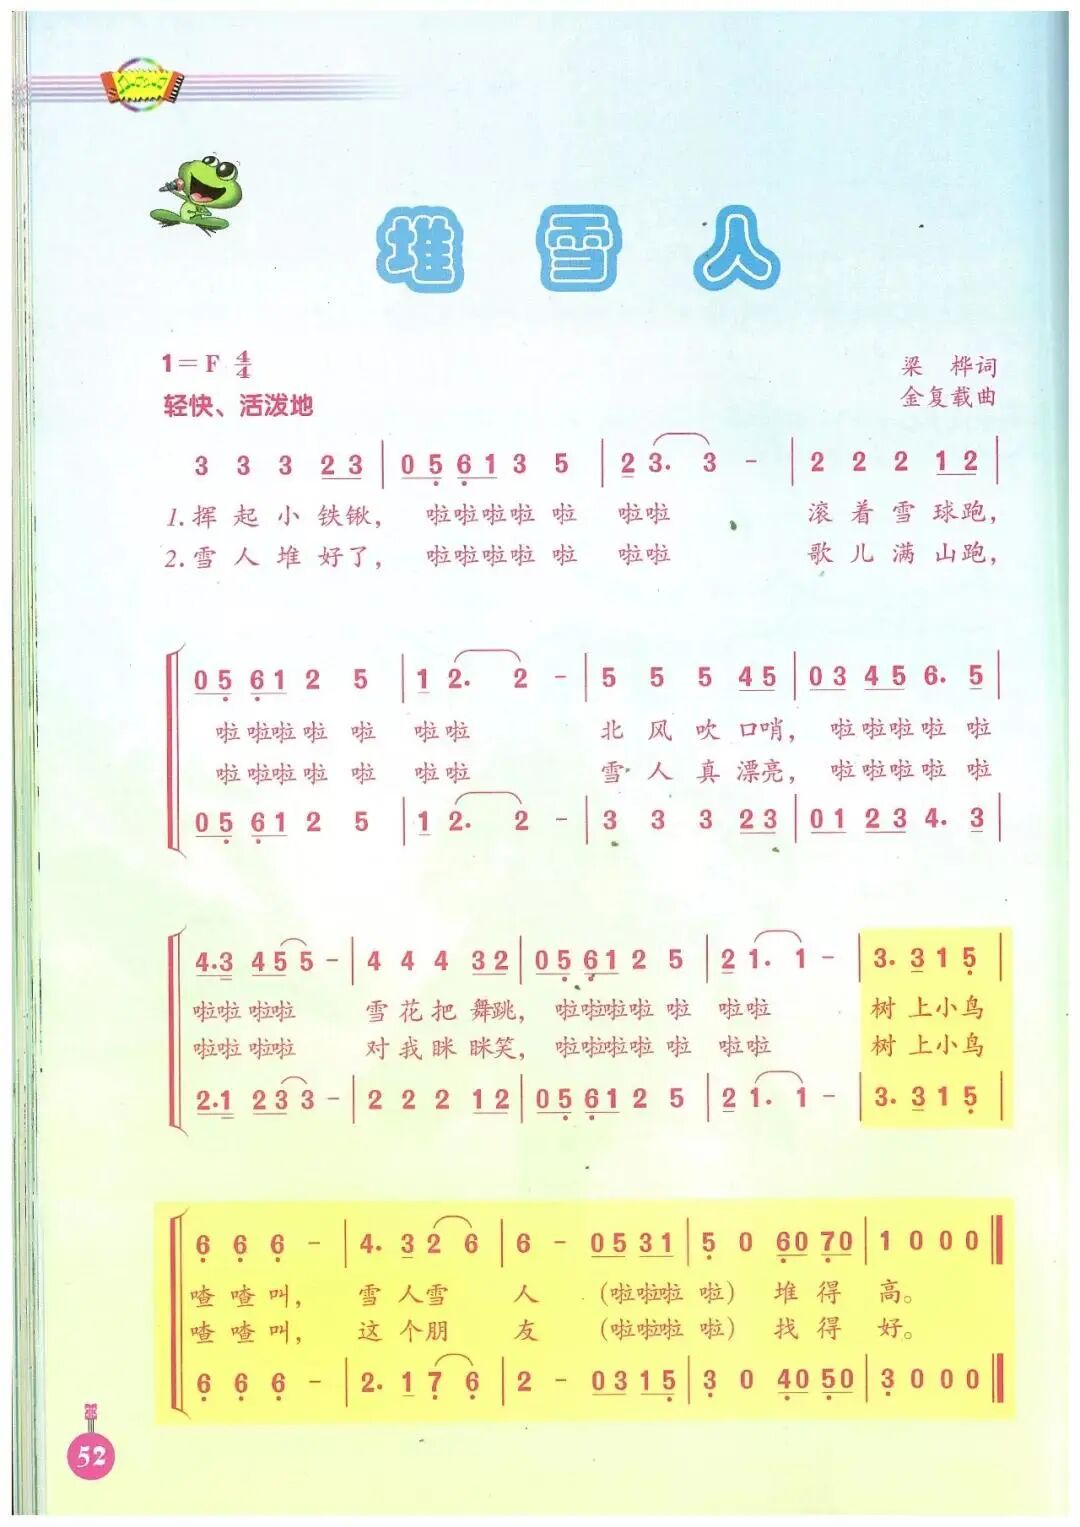 堆雪人
1=F 4/4
梁 桦词
轻快、活泼地
金复载曲
3 3 3 23 | 05613 5 | 2 3. 3 - | 2 2 2 12 |
1.挥起小铁锹， 啦啦啦啦 啦 啦啦 滚着雪球跑，
2.雪人堆好了， 啦啦啦啦 啦 啦啦 歌儿满山跑，
05 61 2 5 | 1 2. 2 - | 5 5 5 45 | 03 45 6. 5 |
啦 啦啦 啦 啦 啦啦 北风吹口哨， 啦啦啦啦 啦
啦 啦啦 啦 啦 啦啦 雪人真漂亮， 啦啦啦啦 啦
05 61 2 5 | 1 2. 2 - | 3 3 3 23 | 01 23 4. 3 |
4.3 45 5 - | 4 4 4 32 | 05612 5 | 2 1. 1 - | 3. 3 1 5 |
啦啦 啦啦 雪花把舞跳， 啦啦啦啦 啦 啦啦 树上小鸟
啦啦 啦啦 对我眯眯笑， 啦啦啦啦 啦 啦啦 树上小鸟
2.1 23 3 - | 2 2 2 12 | 05612 5 | 2 1. 1 - | 3. 3 1 5 |
6 6 6 - | 4. 3 2 6 | 6 - 05 31 | 5 0 60 70 | 1 0 0 0 ‖
喳喳叫， 雪人雪 人 （啦啦啦 啦）堆得 高。
喳喳叫， 这个朋 友 （啦啦啦 啦）找得 好。
6 6 6 - | 2. 1 7 6 | 2 - 03 15 | 3 0 40 50 | 3 0 0 0 ‖
52